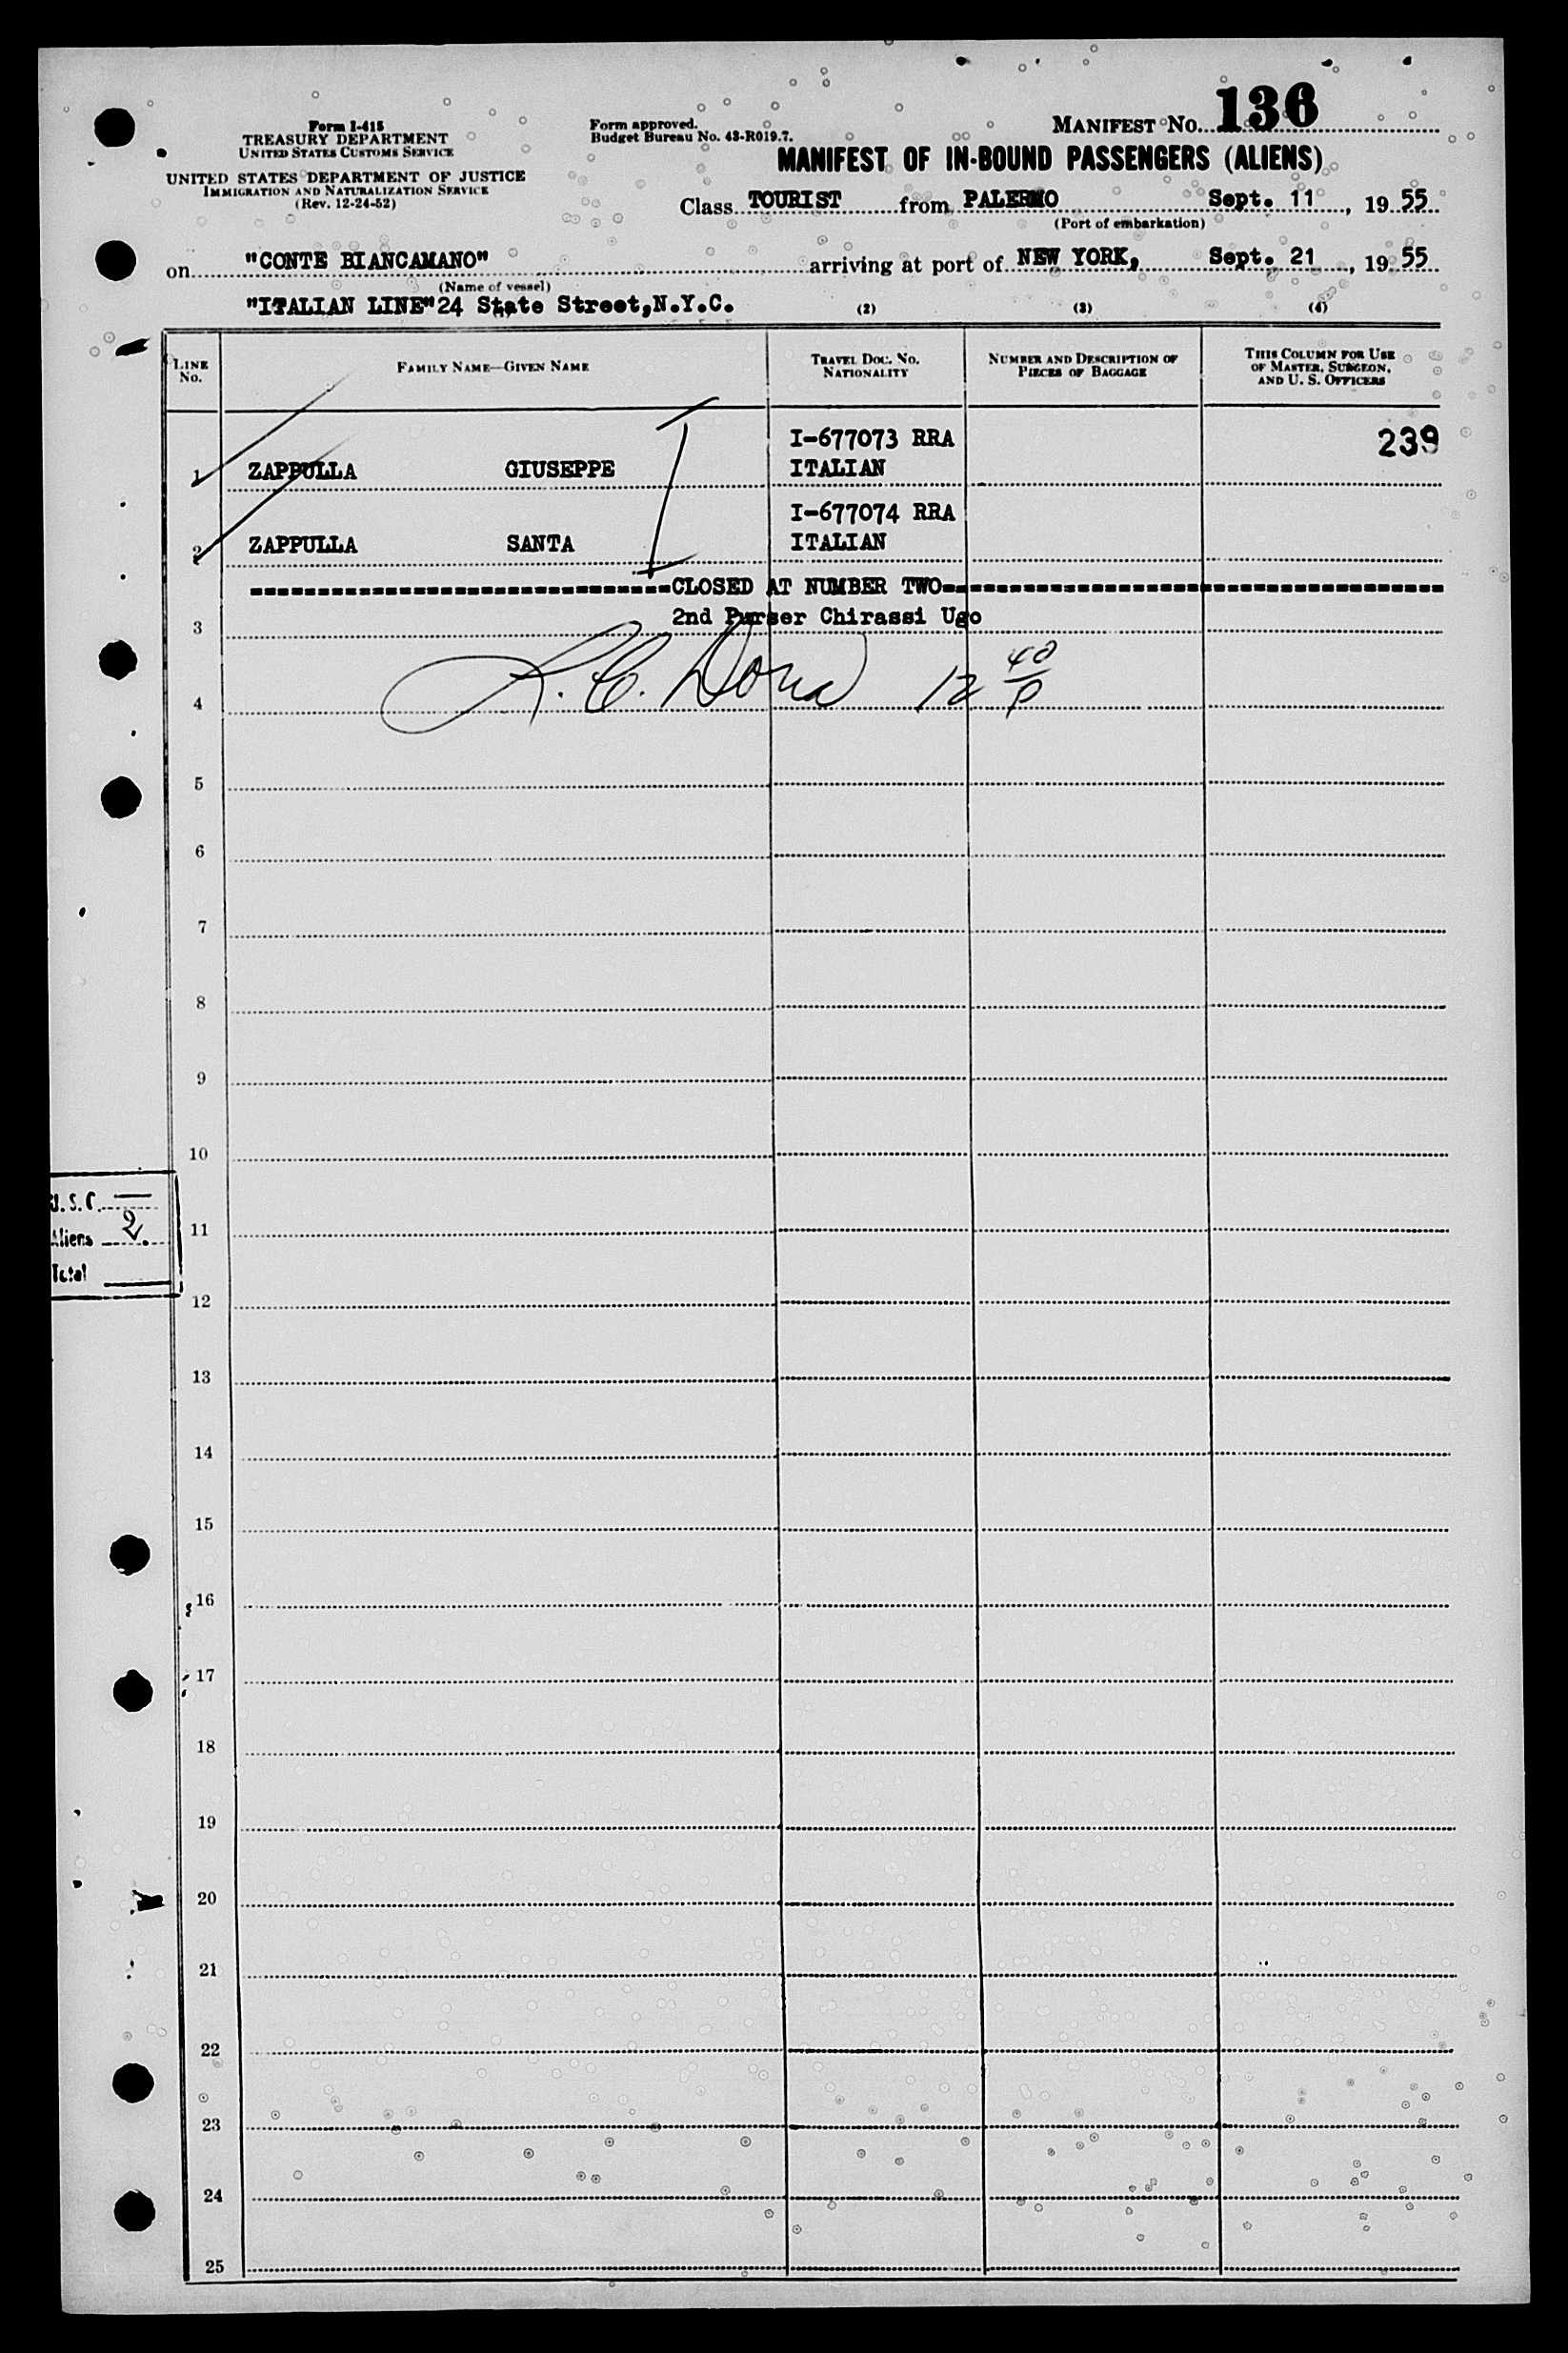 Form I-415
TREASURY DEPARTMENT
UNITED STATES CUSTOMS SERVICE
UNITED STATES DEPARTMENT OF JUSTICE
IMMIGRATION AND NATURALIZATION SERVICE
(Rev. 12-24-52)
Form approved.
Budget Bureau No. 43-R019.7.
MANIFEST No. 136
MANIFEST OF IN-BOUND PASSENGERS (ALIENS)
Class TOURIST from PALERMO Sept. 11, 19 55
(Port of embarkation)
on "CONTE BIANCAMANO" arriving at port of NEW YORK, Sept. 21, 19 55
(Name of vessel)
"ITALIAN LINE" 24 State Street, N.Y.C. (2) (3) (4)
LINE No. FAMILY NAME—GIVEN NAME TRAVEL DOC. No. NATIONALITY NUMBER AND DESCRIPTION OF PIECES OF BAGGAGE THIS COLUMN FOR USE OF MASTER, SURGEON, AND U. S. OFFICERS
I-677073 RRA 239
1 ZAPPULLA GIUSEPPE ITALIAN
I-677074 RRA
2 ZAPPULLA SANTA ITALIAN
CLOSED AT NUMBER TWO
2nd Purser Chirassi Ugo
3
4 12 40/P
5
6
7
8
9
10
U.S.C. —
Aliens 2.
11
Total
12
13
14
15
16
17
18
19
20
21
22
23
24
25